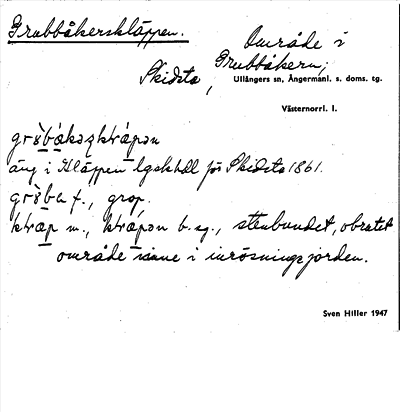 Grubbåkerskläppen.
Område i
Grubbåkern;
Skidsta,
Ullångers sn, Ångermanl. s. doms. tg.
Västernorrl. l.
grò̀bákəʂkwápən
äng i Kläppen lgskhdl för Skidsta 1861.
grò̀ba f., grop.
kwap m., kwápən b. sg., stenbundet, obrutet
område inne i inrösningsjorden.
Sven Hiller 1947